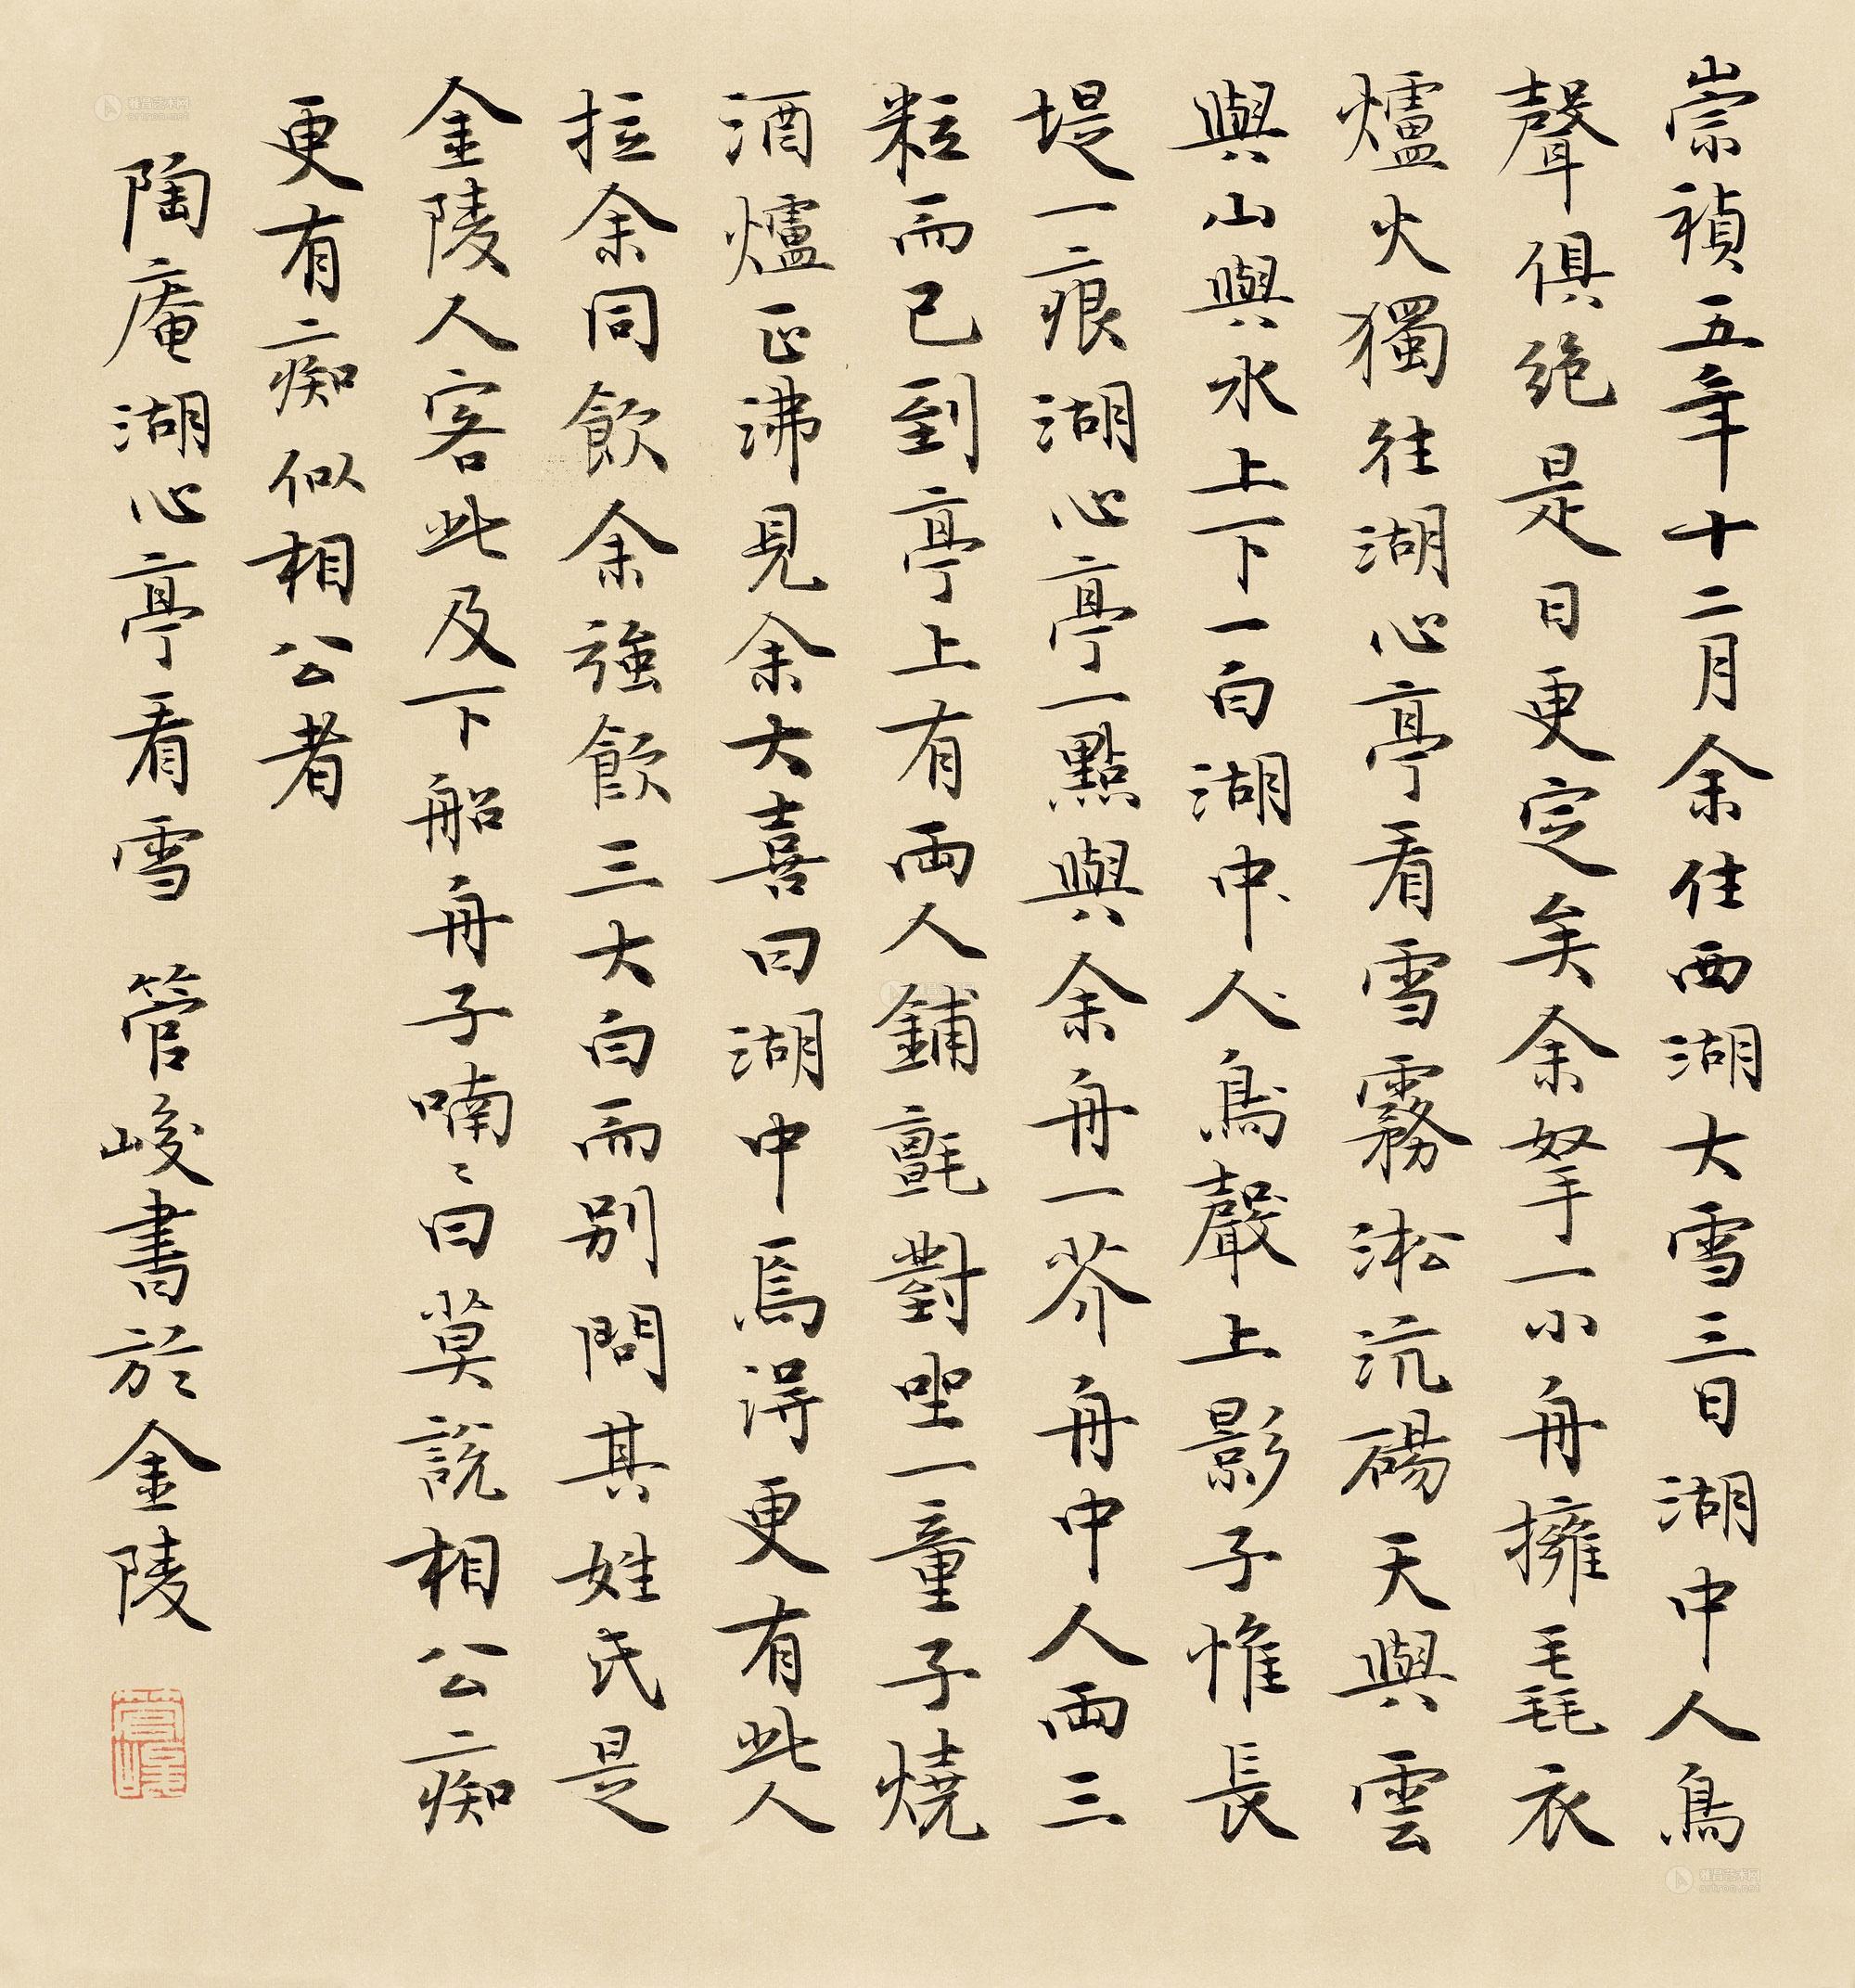 崇禎五年十二月余住西湖大雪三日湖中人鳥
聲俱絶是日更定矣余拏一小舟擁毳衣
爐火獨往湖心亭看雪霧淞沆碭天與雲
與山與水上下一白湖中人鳥聲上影子惟長
堤一痕湖心亭一點與余舟一芥舟中人兩三
粒而已到亭上有兩人鋪氈對坐一童子燒
酒爐正沸見余大喜曰湖中焉得更有此人
拉余同飲余強飲三大白而別問其姓氏是
金陵人客此及下船舟子喃〻曰莫說相公痴
更有痴似相公者
陶庵湖心亭看雪 管峻書於金陵
管峻
雅昌艺术网
artron.net
雅昌艺术网
artron.net